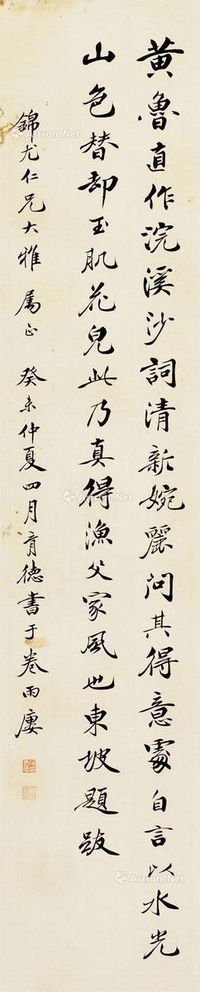 黃魯直作浣溪沙詞清新婉麗問其得意處自言以水光
山色替却玉肌花皃此乃真得漁父家風也東坡題跋
錦尤仁兄大雅 屬正 癸未仲夏四月育德書于卷雨廔